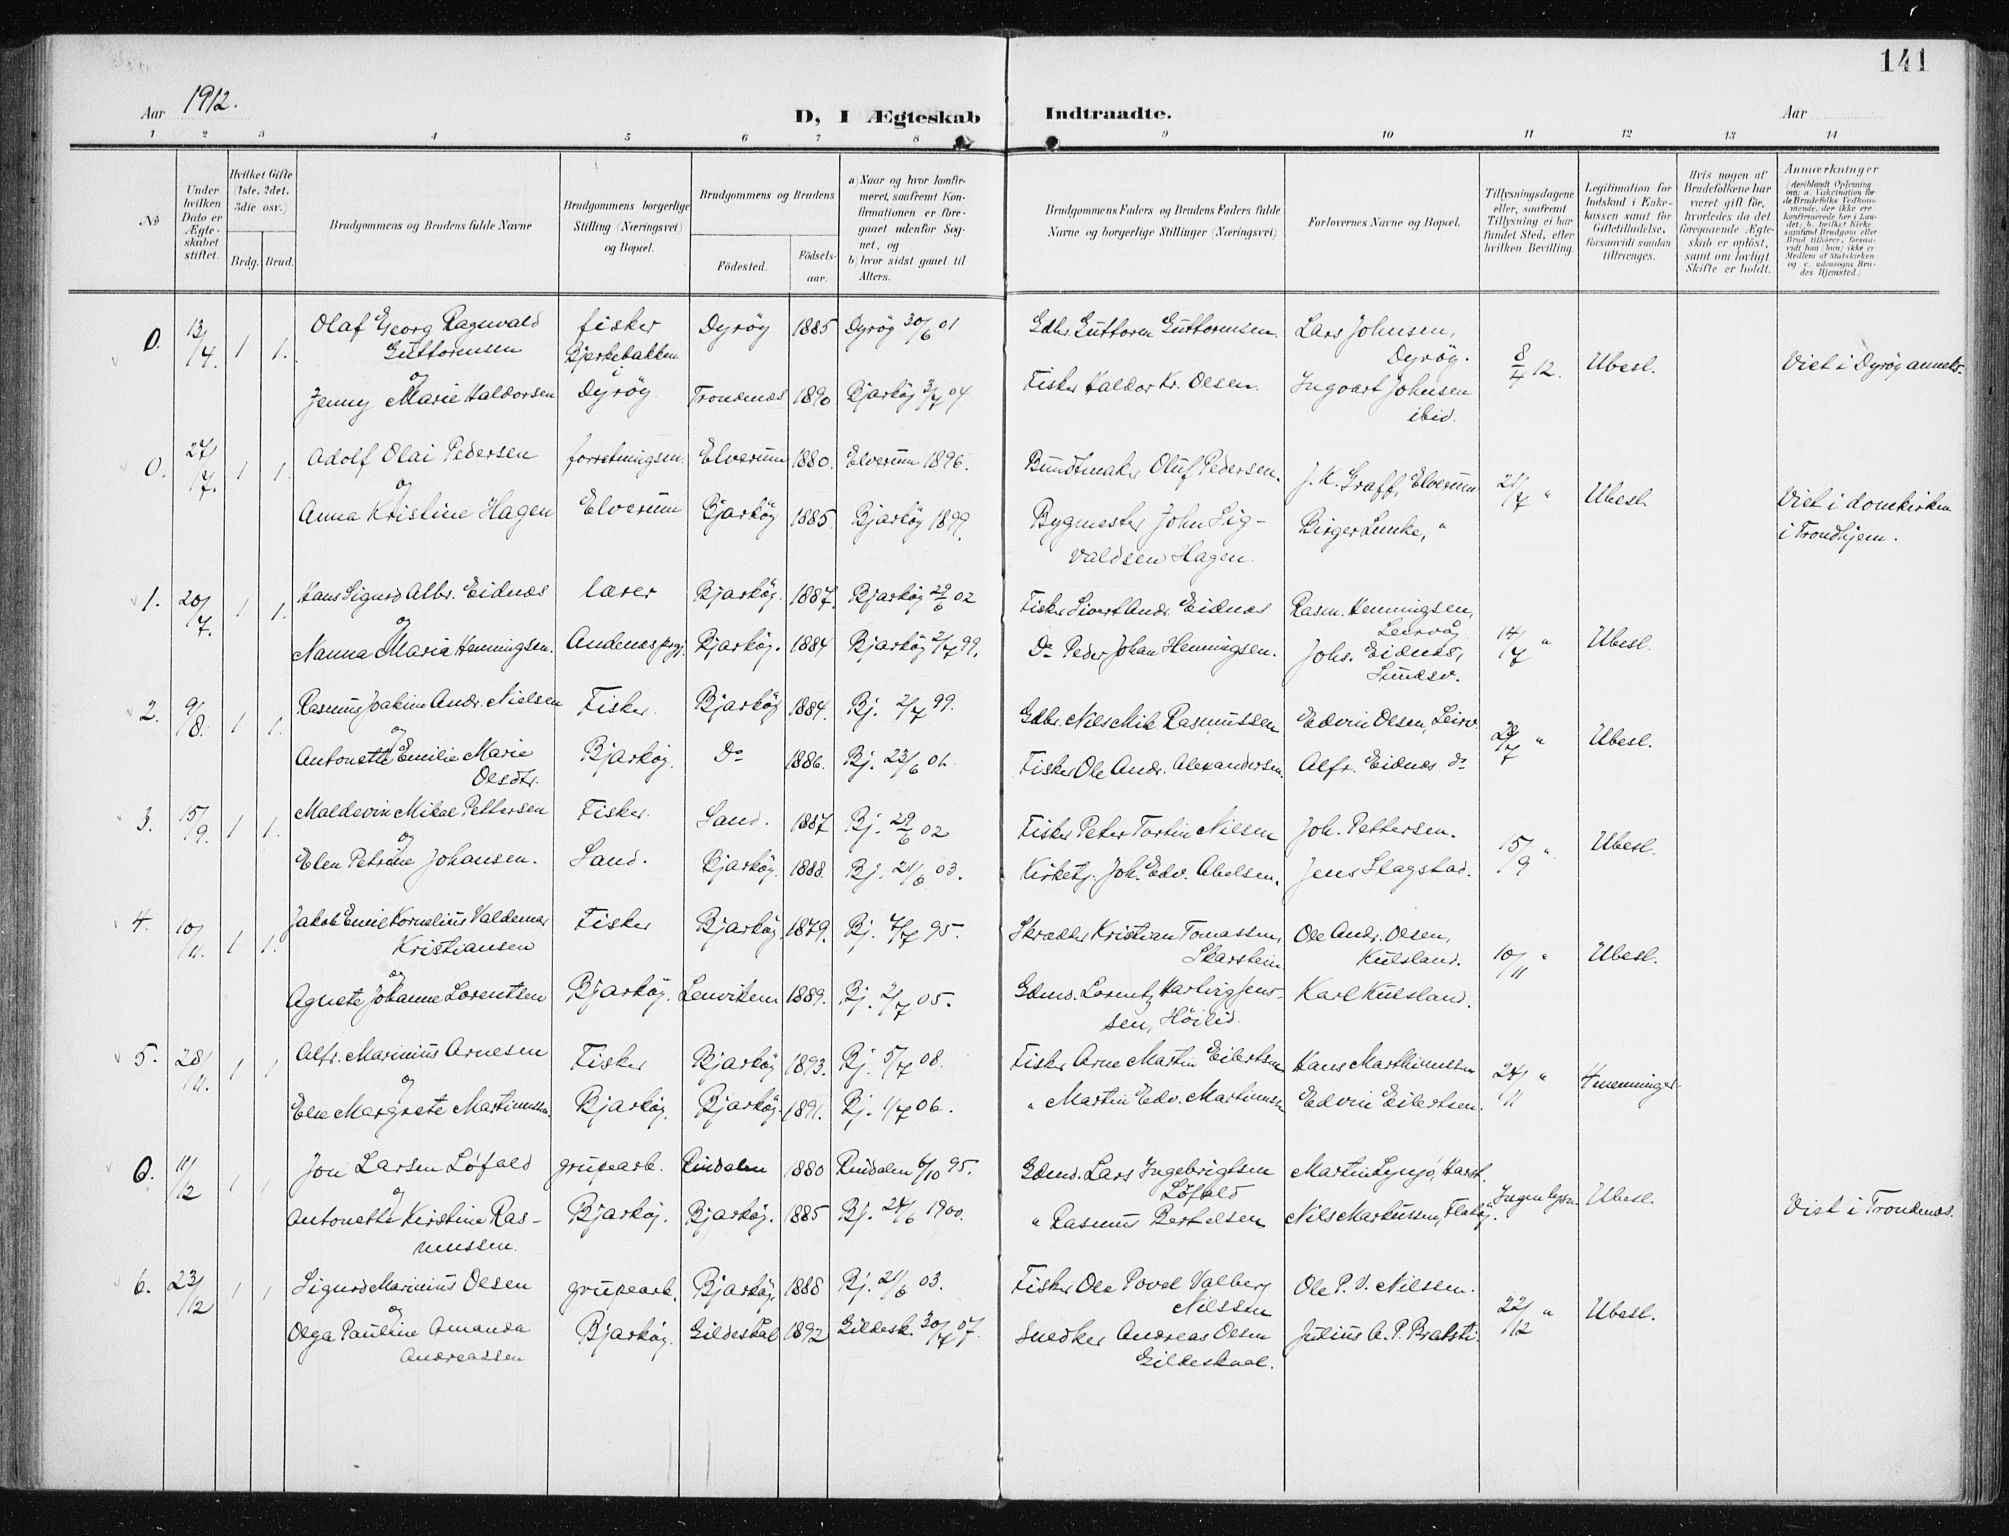 141
Aar 1912.
D, I Ægteskab Indtraadte.
Aar
1 2 3 4 5 6 7 8 9 10 11 12 13 14
No
Under hvilken Dato er Ægteskabet stiftet.
Hvilket Gifte (1ste, 2det, 3die osv.)
Brdg. Brud.
Brudgommens og Brudens fulde Navne
Brudgommens borgerlige Stilling (Næringsvei) og Bopæl.
Brudgommens og Brudens
Fødested.
Fødselsaar.
a) Naar og hvor konfirmeret, saafremt Konfirmationen er foregaaet udenfor Sognet, og
b) hvor sidst gaaet til Alters.
Brudgommens Faders og Brudens Faders fulde Navne og borgerlige Stillinger (Næringsvei)
Forlovernes Navne og Bopæl.
Tillysningsdagene eller, saafremt Tillysning ei har fundet Sted, efter hvilken Bevilling.
Legitimation for Indskud i Enkekassen samt for Giftetilladelse, forsaavidt saadan tiltrænges.
Hvis nogen af Brudefolkene har været gift før, hvorledes da det foregaaende Ægteskab er opløst, samt om lovligt Skifte er holdt.
Anmærkninger (deriblandt Oplysning om: a. Vakcination for de Brudefolks Vedkommende, der ikke ere konfirmerede her i Landet; b. hvilket Kirkesamfund Brudgom eller Brud tilhører, forsaavidt han (hun) ikke er Medlem af Statskirken og c. udensogns Brudes Hjemsted.)
0. 13/4. 1 1. Olaf Georg Ragnvald Guttormsen fisker Bjerkebakken i Dyrøy Dyrøy 1885 Dyrøy 30/6 01 Gdbr. Guttorm Guttormsen. Lars Johnsen, Dyrøy. 8/4 12. Ubesl. Viet i Dyrøy anneks.
og
Jenny Marie Haldorsen Trondenes 1890 Bjarkøy 3/7 04 Fisker Haldor Kr. Olsen. Ingvart Johnsen ibid.
0. 27/7. 1 1. Adolf Olai Pedersen forretningsm. Elverum 1880. Elverum 1896. Bundtmaker Oluf Pedersen. J. K. Graff, Elverum 21/7 " Ubesl. Viet i domkirken i Trondhjem.
og
Anna Kristine Hagen Elverum Bjarkøy 1885. Bjarkøy 1899. Bygmester John Sigvaldsen Hagen. Birger Lunke, "
1. 20/7. 1 1. Hans Sigurd Albr. Eidnes lærer Bjarkøy. 1887. Bjarkøy 29/6 02 Fisker Sivert Andr. Eidnes Rasm. Henningsen, Leirvåg 14/7 " Ubesl.
og
Nanna Maria Henningsen. Andenes prgj. Bjarkøy. 1884 Bjarkøy 2/7 99. Do Peder Johan Henningsen. Johs. Eidnes, Sundsv.
2. 9/8. 1 1. Rasmus Joakim Andr. Nielsen Fisker. Bjarkøy 1884. Bj. 2/7 99. Gdbr. Nils Mik. Rasmussen Edvin Olsen, Leirv. 28/7 " Ubesl.
og
Antonette Emilie Marie Olsdtr. Bjarkøy. Do 1886. Bj. 23/6 01. Fisker Ole Andr. Alexandersen. Alfr. Eidnes do
3. 15/9. 1 1. Maldevin Mikal Pettersen Fisker. Sand. 1887 Bj. 29/6 02 Fisker Peter Tartin Nilsen Joh. Pettersen. 15/9 " Ubesl.
og
Elen Petrine Johansen. Sand. Bjarkøy. 1888. Bj. 21/6 03. Kirketj. Joh. Edv. Abelsen. Jens Slagstad.
4. 10/11. 1 1. Jakob Emil Kornelius Valdemar Kristiansen Fisker Bjarkøy 1879. Bj. 7/7 95. Skrædder Kristian Tomassen, Skarstein Ole Andr. Olsen, Kulsland. 10/11 " Ubesl.
og
Agnete Johanne Lorentsen Bjarkøy. Lenviken 1889. Bj. 2/7 05. Gdmd. Lorentz Hartvig Jenssen, Høilid. Karl Kulsland.
5. 28/11. 1 1 Alfr. Marinius Arnesen Fisker Bjarkøy 1893. Bj. 5/7 08. Fisker Arne Martin Eilertsen Hans Marthinussen 24/11 " 4 menninger
og
Elen Margrete Martinussen. Bjarkøy. Bjarkøy. 1891. Bj. 1/7 06. " Martin Edv. Martinussen Edvin Eilertsen.
0. 11/12 1 1 Jon Larsen Løfald grubearb. Rindalen 1880 Rindalen 6/10 95. Gdmd. Lars Ingebrigtsen Løfald Martin Lynjø, Harst. Ingen lysn. Ubesl. Viet i Trondenes.
og
Antonette Kirstine Rasmussen. Bjarkøy. Bjarkøy. 1885 Bj. 24/6 1900. " Rasmus Bertelsen Nils Markussen, Flatøy.
6. 23/12 1 1 Sigurd Marinius Olsen grubearb. Bjarkøy. 1888 Bj. 21/6 03. Fisker Ole Povel Valberg Nilssen Ole P. V. Nilssen. 22/12 " Ubesl.
og
Olga Pauline Amanda Andreassen Bjarkøy. Gildeskål 1892 Gildesk. 30/7 07. Snedker Andreas Olsen Gildeskaal. Julius A. P. Bratsti.